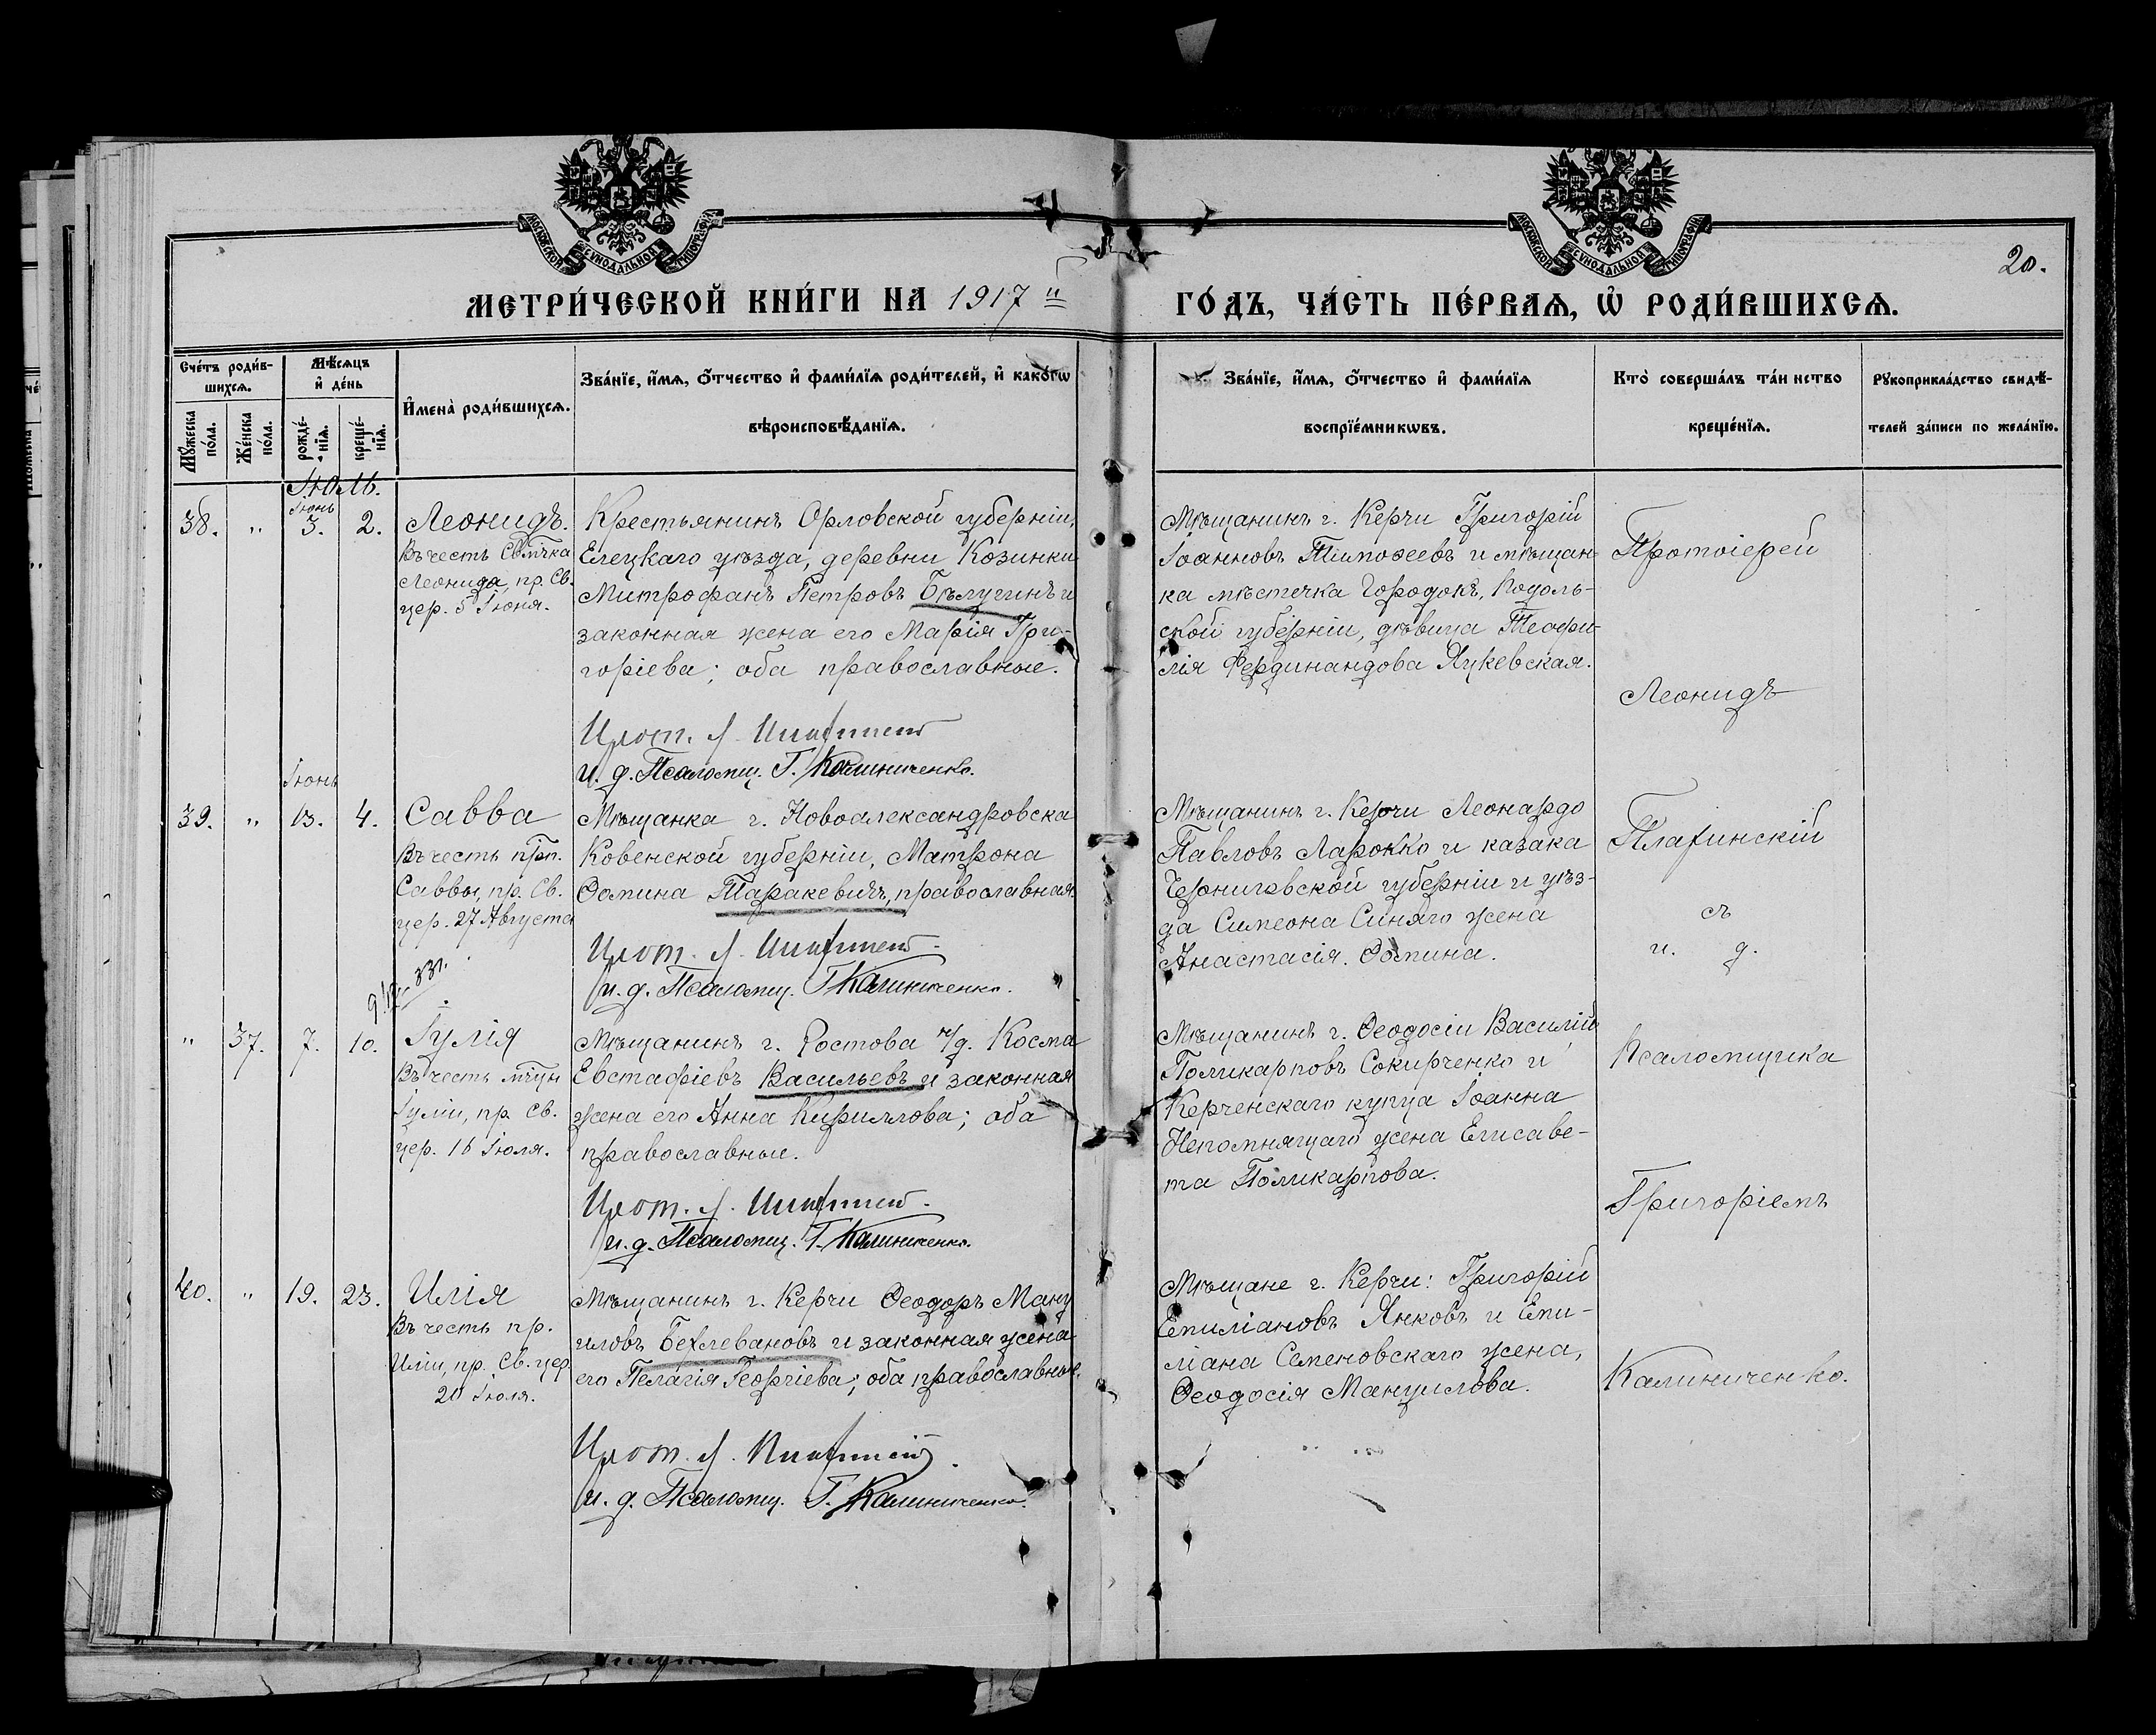 МОСКОВСКОЙ СѴНОДАЛЬНОЙ ТИПОГРАФІИ
МОСКОВСКОЙ СѴНОДАЛЬНОЙ ТИПОГРАФІИ
20.
МЕТРИ́ЧЕСКОЙ КНИ́ГИ НА 1917 й ГО́ДЪ, ЧА́СТЬ ПЕ́РВАѦ, Ѡ҆ РОДИ́ВШИХСѦ.
Сче́тъ роди́в-
шихсѧ.
Мꙋ́жеска по́ла.
Же́нска по́ла.
Мѣ́сѧцъ
и҆ де́нь
рожде́-
нїѧ.
креще́-
нїѧ.
И҆мена̀ роди́вшихсѧ.
Зва́нїе, и҆́мѧ, ѻ҆́тчество и҆ фами́лїѧ роди́телей, и҆ како́гѡ
вѣроисповѣ́данїѧ.
Зва́нїе, и҆́мѧ, ѻ҆́тчество и҆ фами́лїѧ
воспрїе́мникѡвъ.
Кто̀ соверша́лъ та́инство
креще́нїѧ.
Рꙋкоприкла́дство свидѣ́-
телей за́писи по жела́нїю.
Іюль.
38. " Іюнь 3. 2.
Леонидъ.
Въ честь Свмчка
Леонида, пр. Св.
цер. 5 Іюня.
Крестьянинъ Орловской губерніи,
Елецкаго уѣзда, деревни Козинки
Митрофанъ Петровъ Бѣлугинъ и
законная жена его Марія Гри-
горіева; оба православные.
Прот. Л.
и. д. Псаломщ. Г. Калиниченко.
Мѣщанинъ г. Керчи Григорій
Іоанновъ Тимоѳеевъ и мѣщан-
ка мѣстечка Городокъ, Подоль-
ской губерніи, дѣвица Теофи-
лія Фердинандова Яцкевская.
Протоіерей
Леонидъ
39. " Іюнь 13. 4.
Савва
Въ честь прп.
Саввы, пр. Св.
цер. 27 Августа
Мѣщанка г. Новоалександровска
Ковенской губерніи, Матрона
Ѳомина Таракевичъ, православная.
Прот. Л.
и. д. Псаломщ. Г. Калиниченко.
Мѣщанинъ г. Керчи Леонардо
Павловъ Ларокко и казака
Черниговской губерніи и уѣз-
да Симеона Синяго жена
Анастасія Ѳомина.
съ
и. д.
" 37. 7. 10.
Іулія
Въ честь мцы
Іуліи, пр. Св.
цер. 16 Іюля.
Мѣщанинъ г. Ростова н/д. Косма
Евстафіевъ Васильевъ и законная
жена его Анна Кириллова; оба
православные.
Прот. Л.
и. д. Псаломщ. Г. Калиниченко.
Мѣщанинъ г. Ѳеодосіи Василій
Поликарповъ Сокирченко и
Керченскаго купца Іоанна
Непомнящаго жена Елисаве-
та Поликарпова.
Псаломщика
Григоріемъ
40. " 19. 23.
Илія
Въ честь пр.
Иліи, пр. Св. цер.
20 Іюля.
Мѣщанинъ г. Керчи Ѳеодоръ Ману
иловъ Бехлевановъ и законная жена
его Пелагія Георгіева; оба православные.
Прот. Л.
и. д. Псаломщ. Г. Калиниченко.
Мѣщане г. Керчи: Григорій
Емиліановъ Янковъ и Еми-
ліана Семеновскаго жена,
Ѳеодосія Мануилова.
Калиниченко.